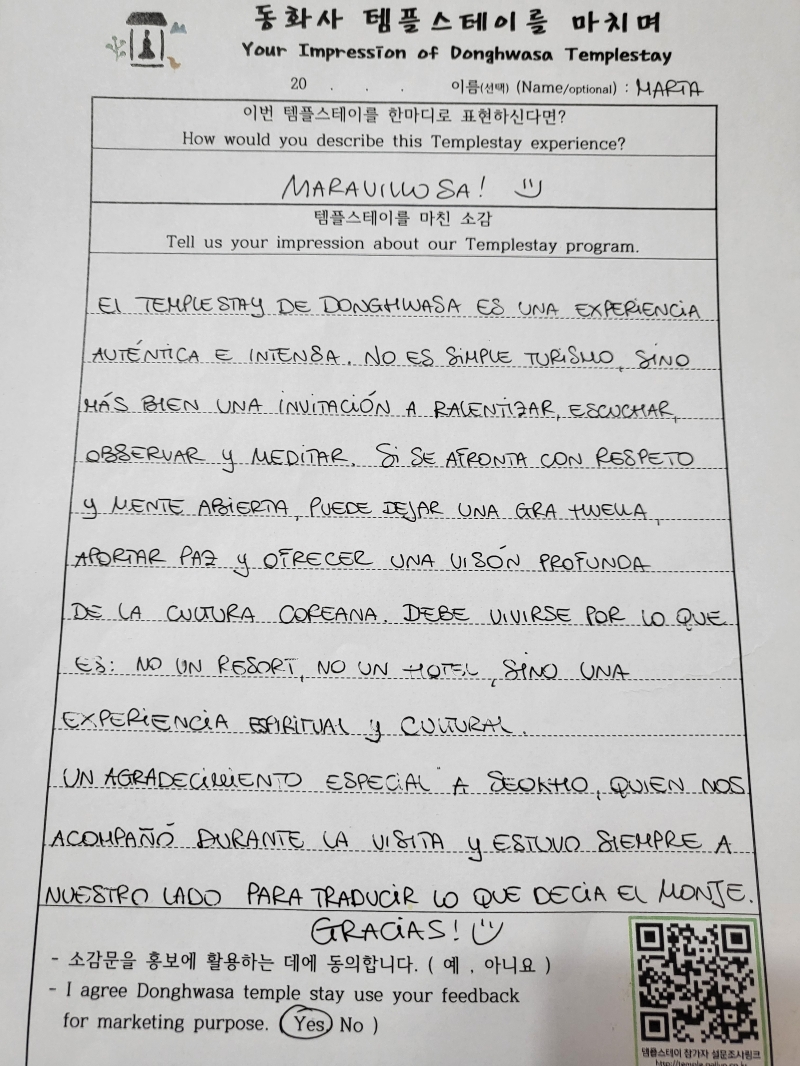 동화사 템플스테이를 마치며
Your Impression of Donghwasa Templestay
20 . . . 이름(선택) (Name/optional) : MARTA
이번 템플스테이를 한마디로 표현하신다면?
How would you describe this Templestay experience?
MARAVILLOSA! :)
템플스테이를 마친 소감
Tell us your impression about our Templestay program.
El TEMPLESTAY DE DONGHWASA ES UNA EXPERIENCIA
AUTÉNTICA E INTENSA. NO ES SIMPLE TURISMO, SINO
MÁS BIEN UNA INVITACIÓN A RALENTIZAR, ESCUCHAR,
OBSERVAR Y MEDITAR. SI SE AFRONTA CON RESPETO
Y MENTE ABIERTA, PUEDE DEJAR UNA GRA HUELLA,
APORTAR PAZ Y OFRECER UNA VISÓN PROFUNDA
DE LA CULTURA COREANA. DEBE VIVIRSE POR LO QUE
ES: NO UN RESORT, NO UN HOTEL, SINO UNA
EXPERIENCIA ESPIRITUAL Y CULTURAL.
UN AGRADECIMIENTO ESPECIAL A SEOKHO, QUIEN NOS
ACOMPAÑÓ DURANTE LA VISITA Y ESTUVO SIEMPRE A
NUESTRO LADO PARA TRADUCIR LO QUE DECIA EL MONJE.
GRACIAS! :)
- 소감문을 홍보에 활용하는 데에 동의합니다. ( 예 , 아니요 )
- I agree Donghwasa temple stay use your feedback
for marketing purpose. (Yes) No )
템플스테이 참가자 설문조사링크